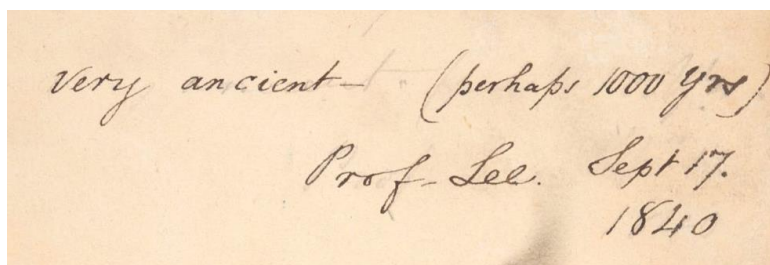 very ancient – (perhaps 1000 yrs)
Prof. Lee. Sept 17.
1840